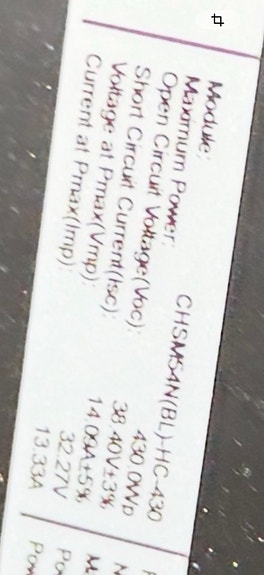 Module: CHSM54N(BL)-HC-430
Maximum Power: 430.0Wp
Open Circuit Voltage(Voc): 38.40V±3%
Short Circuit Current(Isc): 14.06A±5%
Voltage at Pmax(Vmp): 32.27V
Current at Pmax(Imp): 13.33A